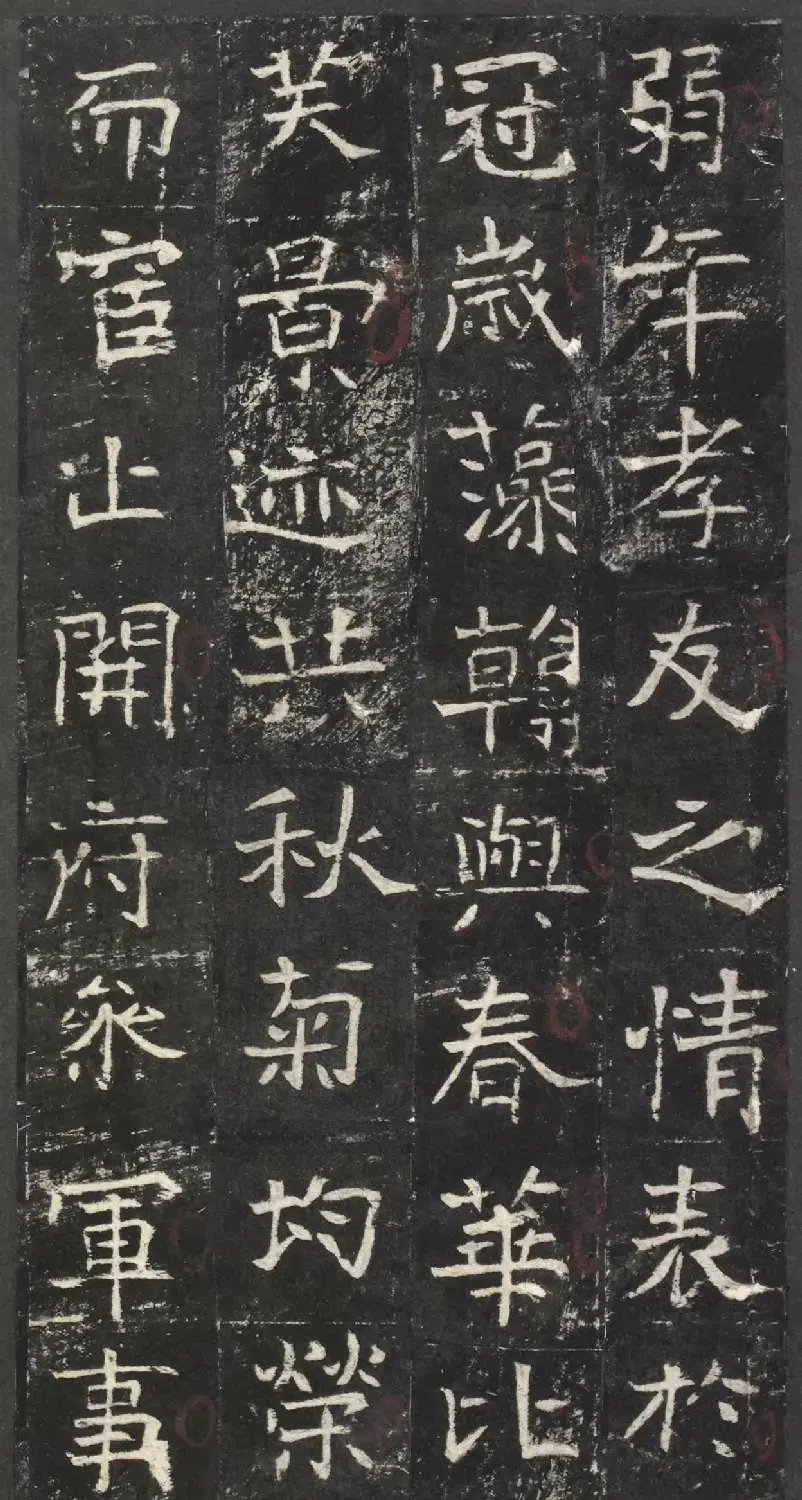 弱年孝友之情表於
冠歲藻翰與春華比
芺景迹共秋菊均榮
而宦止開府叅軍事